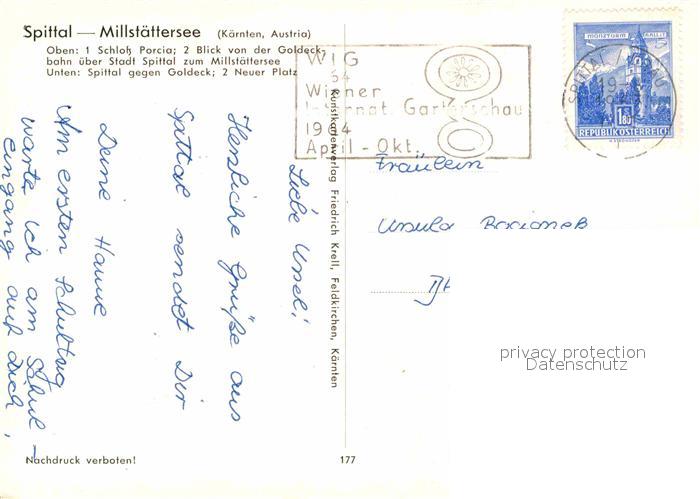 Spittal — Millstättersee (Kärnten, Austria)
Oben: 1 Schloß Porcia; 2 Blick von der Goldeck-
bahn über Stadt Spittal zum Millstättersee
Unten: Spittal gegen Goldeck; 2 Neuer Platz
WIG
64
Wiener
Internat. Gartenschau
1964
April - Okt.
MÜNZTURM HALL I.T.
1.80
REPUBLIK ÖSTERREICH
SPITTAL
19
Liebe Ursel!
Herzliche Grüße aus
Spittal sendet Dir
Deine Hanne
Am ersten Schultag
warte ich am Schul-
eingang auf dich.
Kunstkartenverlag Friedrich Krell, Feldkirchen, Kärnten
Fräulein
Ursula
privacy protection
Datenschutz
Nachdruck verboten!
177